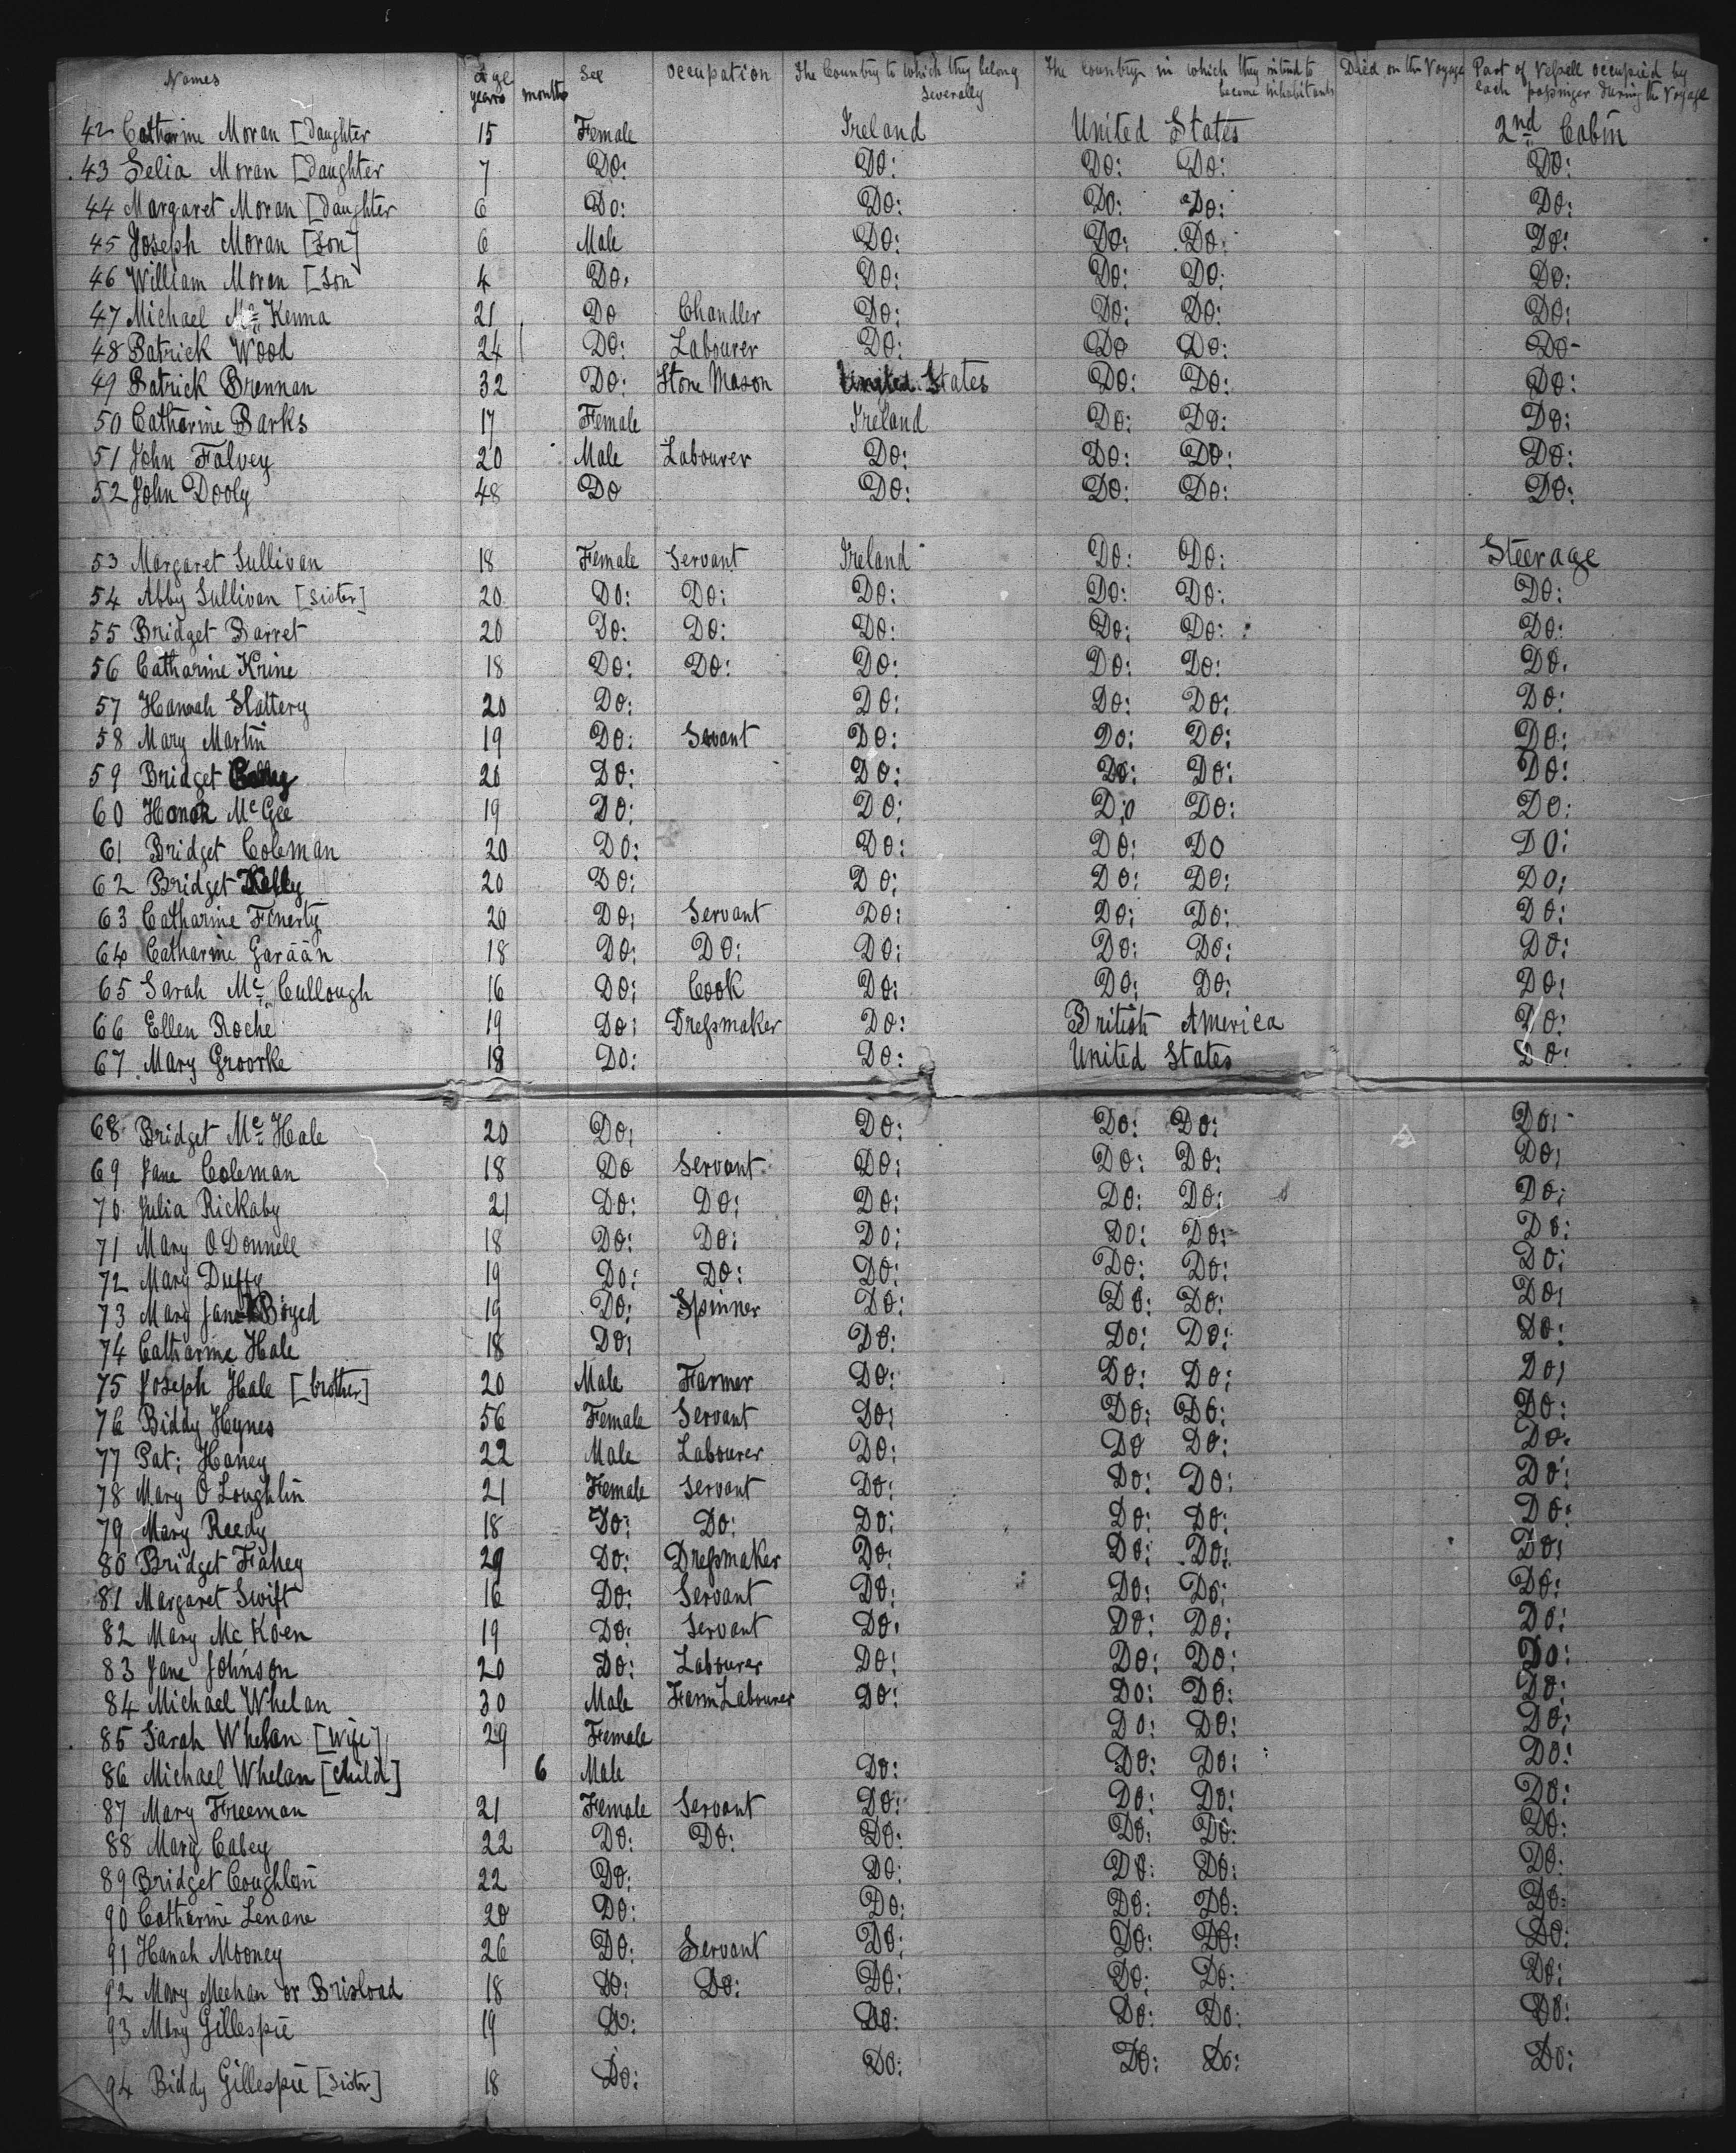 Names Age years months Sex Occupation The Country to which they belong severally The Country in which they intend to become inhabitants Died on the Voyage Part of Vessell occupied by each passinger during the Voyage
42 Catharine Moran [Daughter 15 Female Ireland United States 2nd Cabin
43 Selia Moran [Daughter 7 Do: Do: Do: Do: Do:
44 Margaret Moran [Daughter 6 Do: Do: Do: Do: Do:
45 Joseph Moran [Son] 6 Male Do: Do: Do: Do:
46 William Moran [Son 4 Do: Do: Do: Do: Do:
47 Michael Mc Kenna 21 Do Chandler Do: Do: Do: Do:
48 Patrick Wood 24 Do: Labourer Do: Do Do: Do-
49 Patrick Brennan 32 Do: Stone Mason United States Do: Do: Do:
50 Catharine Parks 17 Female Ireland Do: Do: Do:
51 John Falvey 20 Male Labourer Do: Do: Do: Do:
52 John Dooly 48 Do Do: Do: Do: Do:
53 Margaret Sullivan 18 Female Servant Ireland Do: Do: Steerage
54 Abby Sullivan [Sister] 20 Do: Do: Do: Do: Do: Do:
55 Bridget Barret 20 Do: Do: Do: Do: Do: Do:
56 Catharine Krine 18 Do: Do: Do: Do: Do: Do:
57 Hannah Slattery 20 Do: Do: Do: Do: Do:
58 Mary Martin 19 Do: Servant Do: Do: Do: Do:
59 Bridget 20 Do: Do: Do: Do: Do:
60 Honor McGee 19 Do: Do: Do Do: Do:
61 Bridget Coleman 20 Do: Do: Do: Do Do:
62 Bridget Kelly 20 Do: Do: Do: Do: Do:
63 Catharine Finerty 20 Do: Servant Do: Do: Do: Do:
64 Catharine Garāān 18 Do: Do: Do: Do: Do: Do:
65 Sarah Mc Cullough 16 Do: Cook Do: Do: Do: Do:
66 Ellen Roche 19 Do: Dressmaker Do: British America Do:
67 Mary Groorke 18 Do: Do: United States Do:
68 Bridget Mc Hale 20 Do: Do: Do: Do: Do:
69 Jane Coleman 18 Do Servant Do: Do: Do: Do:
70 Julia Rickaby 21 Do: Do: Do: Do: Do: Do:
71 Mary O Donnell 18 Do: Do: Do: Do: Do: Do:
72 Mary Duffy 19 Do: Do: Do: Do: Do: Do:
73 Mary Jane Boyed 19 Do: Spinner Do: Do: Do: Do:
74 Catharine Hale 18 Do: Do: Do: Do: Do:
75 Joseph Hale [brother] 20 Male Farmer Do: Do: Do: Do:
76 Biddy Hynes 56 Female Servant Do: Do: Do: Do:
77 Pat: Haney 22 Male Labourer Do: Do Do: Do:
78 Mary O Loughlin 21 Female Servant Do: Do: Do: Do:
79 Mary Reedy 18 Do: Do: Do: Do: Do: Do:
80 Bridget Fahey 29 Do: Dressmaker Do: Do: Do: Do:
81 Margaret Swift 16 Do: Servant Do: Do: Do: Do:
82 Mary Mc Koen 19 Do: Servant Do: Do: Do: Do:
83 Jane Johnson 20 Do: Labourer Do: Do: Do: Do:
84 Michael Whelan 30 Male Farm Labourer Do: Do: Do: Do:
85 Sarah Whelan [Wife] 29 Female Do: Do: Do:
86 Michael Whelan [Child] 6 Male Do: Do: Do: Do:
87 Mary Freeman 21 Female Servant Do: Do: Do: Do:
88 Mary Cabey 22 Do: Do: Do: Do: Do: Do:
89 Bridget Coughlan 22 Do: Do: Do: Do: Do:
90 Catharine Lenane 20 Do: Do: Do: Do: Do:
91 Hanah Mooney 26 Do: Servant Do: Do: Do: Do:
92 Mary Meehan or 18 Do: Do: Do: Do: Do: Do:
93 Mary Gillespie 19 Do: Do: Do: Do: Do:
94 Biddy Gillespie [Sister] 18 Do: Do: Do: Do: Do: